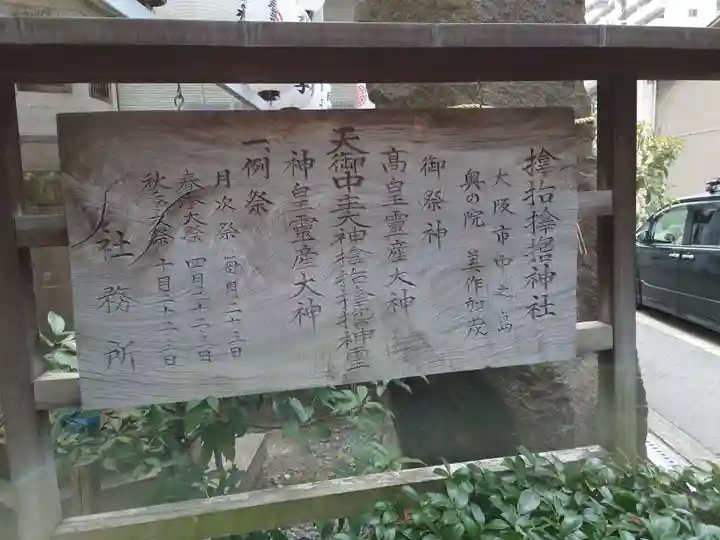 撿抬捨捨神社
大阪市中之島
奥の院 美作加茂
御祭神
高皇靈産大神
天御中主大神撿抬捨捨神靈
神皇靈産大神
一、例祭
月次祭 毎月二十三日
春季大祭 四月二十二・三日
秋季大祭 十月二十二・三日
社務所